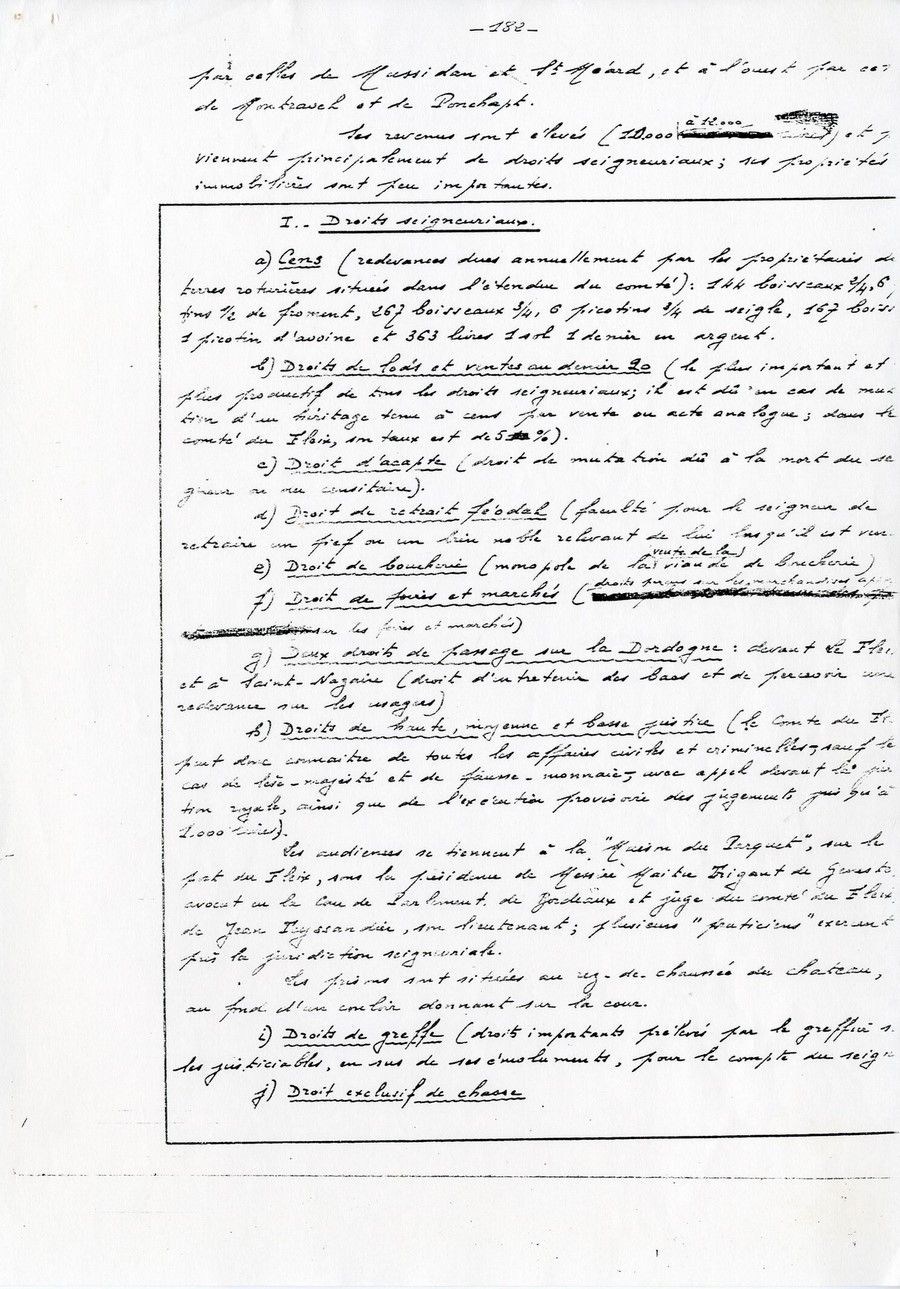 -182-
par celles de Mussidan et St Méard, et à l'ouest par ce
de Montravel et de Ponchapt.
Les revenus sont élevés (10.000 à 12.000) et
viennent principalement de droits seigneuriaux; ses propriétés
immobilières sont peu importantes.
I.- Droits seigneuriaux.
a) Cens (redevances dues annuellement par les propriétaires de
terres roturières situées dans l'étendue du comté): 144 boisseaux 3/4, 6
tins 1/2 de froment, 267 boisseaux 3/4, 6 picotins 3/4 de seigle, 167 boiss
1 picotin d'avoine et 363 livres 1 sol 1 denier en argent.
b) Droits de lods et ventes au denier 20 (le plus important et
plus productif de tous les droits seigneuriaux; il est dû en cas de muta
tion d'un héritage tenu à cens par vente ou acte analogue; dans le
comté du Fleix, son taux est de 5 %).
c) Droit d'acapte (droit de mutation dû à la mort du sei
gneur ou du censitaire).
d) Droit de retrait féodal (faculté pour le seigneur de
retraire un fief ou un bien noble relevant de lui lorsqu'il est ven
e) Droit de boucherie (monopole de la vente de la viande de boucherie)
f) Droit de foires et marchés (droits perçus sur les marchandises
sur les foires et marchés)
g) Deux droits de passage sur la Dordogne : devant Le Flei
et à Saint-Nazaire (droit d'entretenir des bacs et de percevoir une
redevance sur les usagers)
h) Droits de haute, moyenne et basse justice (le Comte du Fl
peut donc connaitre de toutes les affaires civiles et criminelles, sauf le
cas de lèse-majesté et de fausse-monnaie, avec appel devant la
tion royale, ainsi que de l'exécution provisoire des jugements jusqu'à
1.000 livres).
Les audiences se tiennent à la "Maison du Parquet", sur le
port du Fleix, sous la présidence de Messire Maitre Trigant de
avocat en la Cour de Parlement de Bordeaux et juge du comté du Fleix
de Jean Teyssandier, son lieutenant; plusieurs "praticiens" exercent
près la juridiction seigneuriale.
Les prisons sont situées au rez-de-chaussée du chateau,
au fond d'un couloir donnant sur la cour.
i) Droits de greffe (droits importants prélevés par le greffier s
les justiciables, en sus de ses émoluments, pour le compte du seign
j) Droit exclusif de chasse